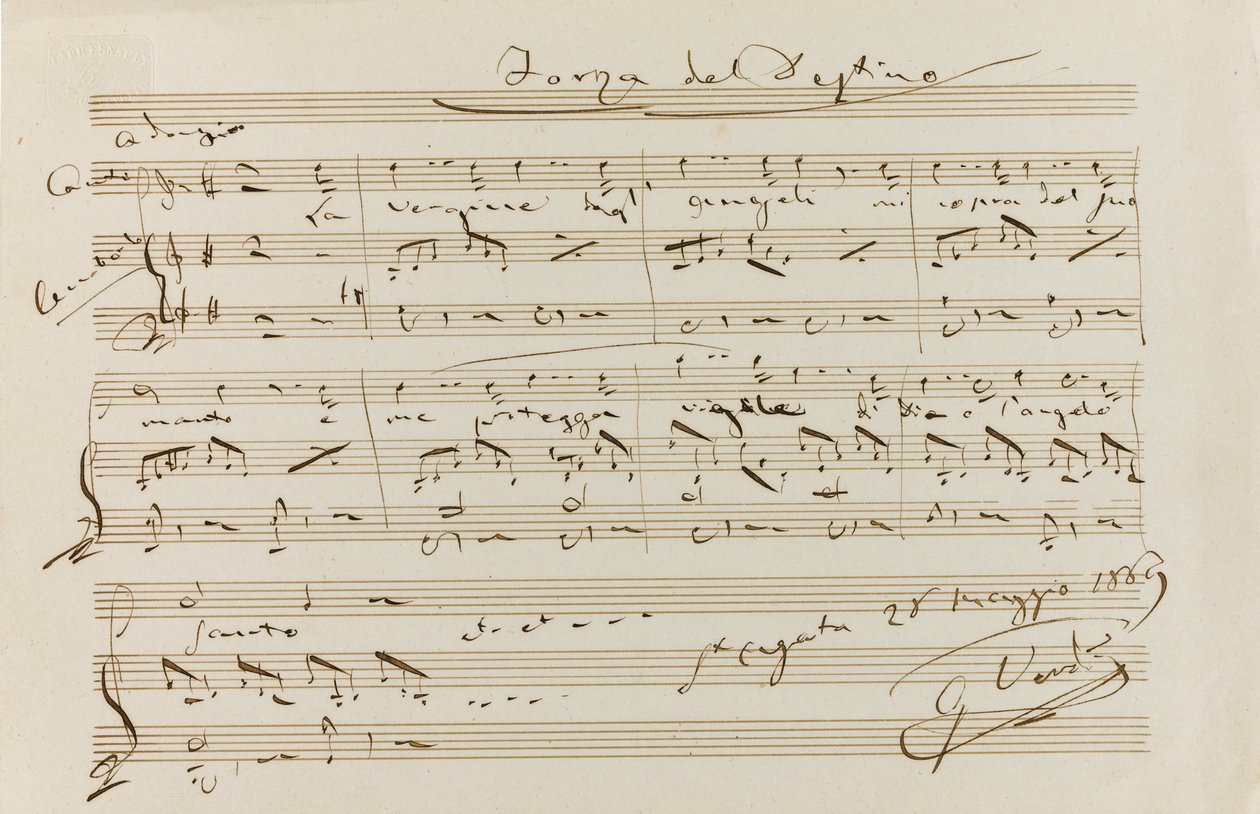 Forza del Destino
Adagio
Canto
La vergine degl' angeli mi copra del suo
Cembalo
manto e me protegga vigile di Dio l'angelo
Santo et. et - - - -
St Agata 28 Maggio 1869
G Verdi